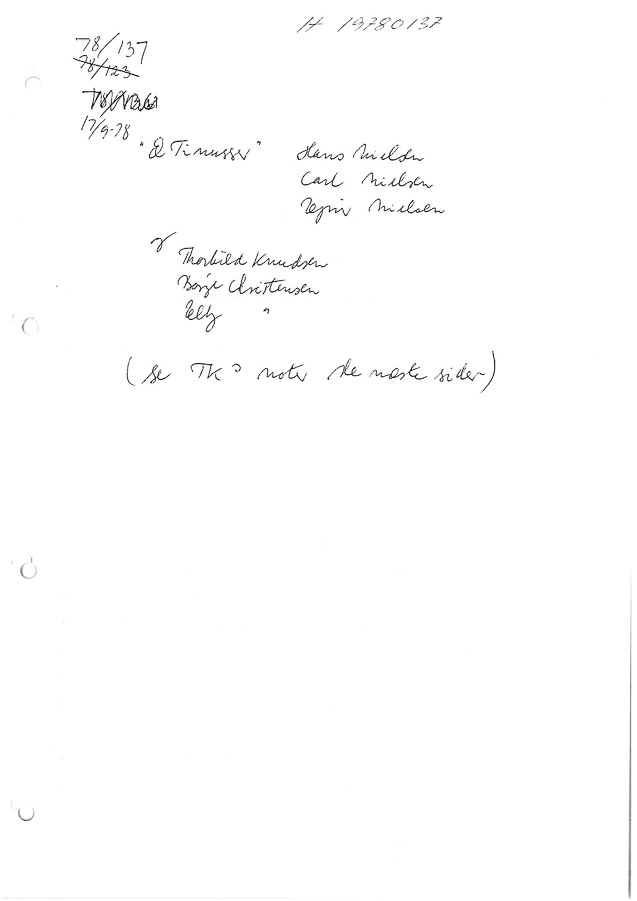 H 19780137
78/137
78/123
17/9-78
"D Timusser" Hans Nielsen
Carl Nielsen
Ejnir Nielsen
Thorkild Knudsen
Børge Christensen
Elly "
(se TK's noter de næste sider)